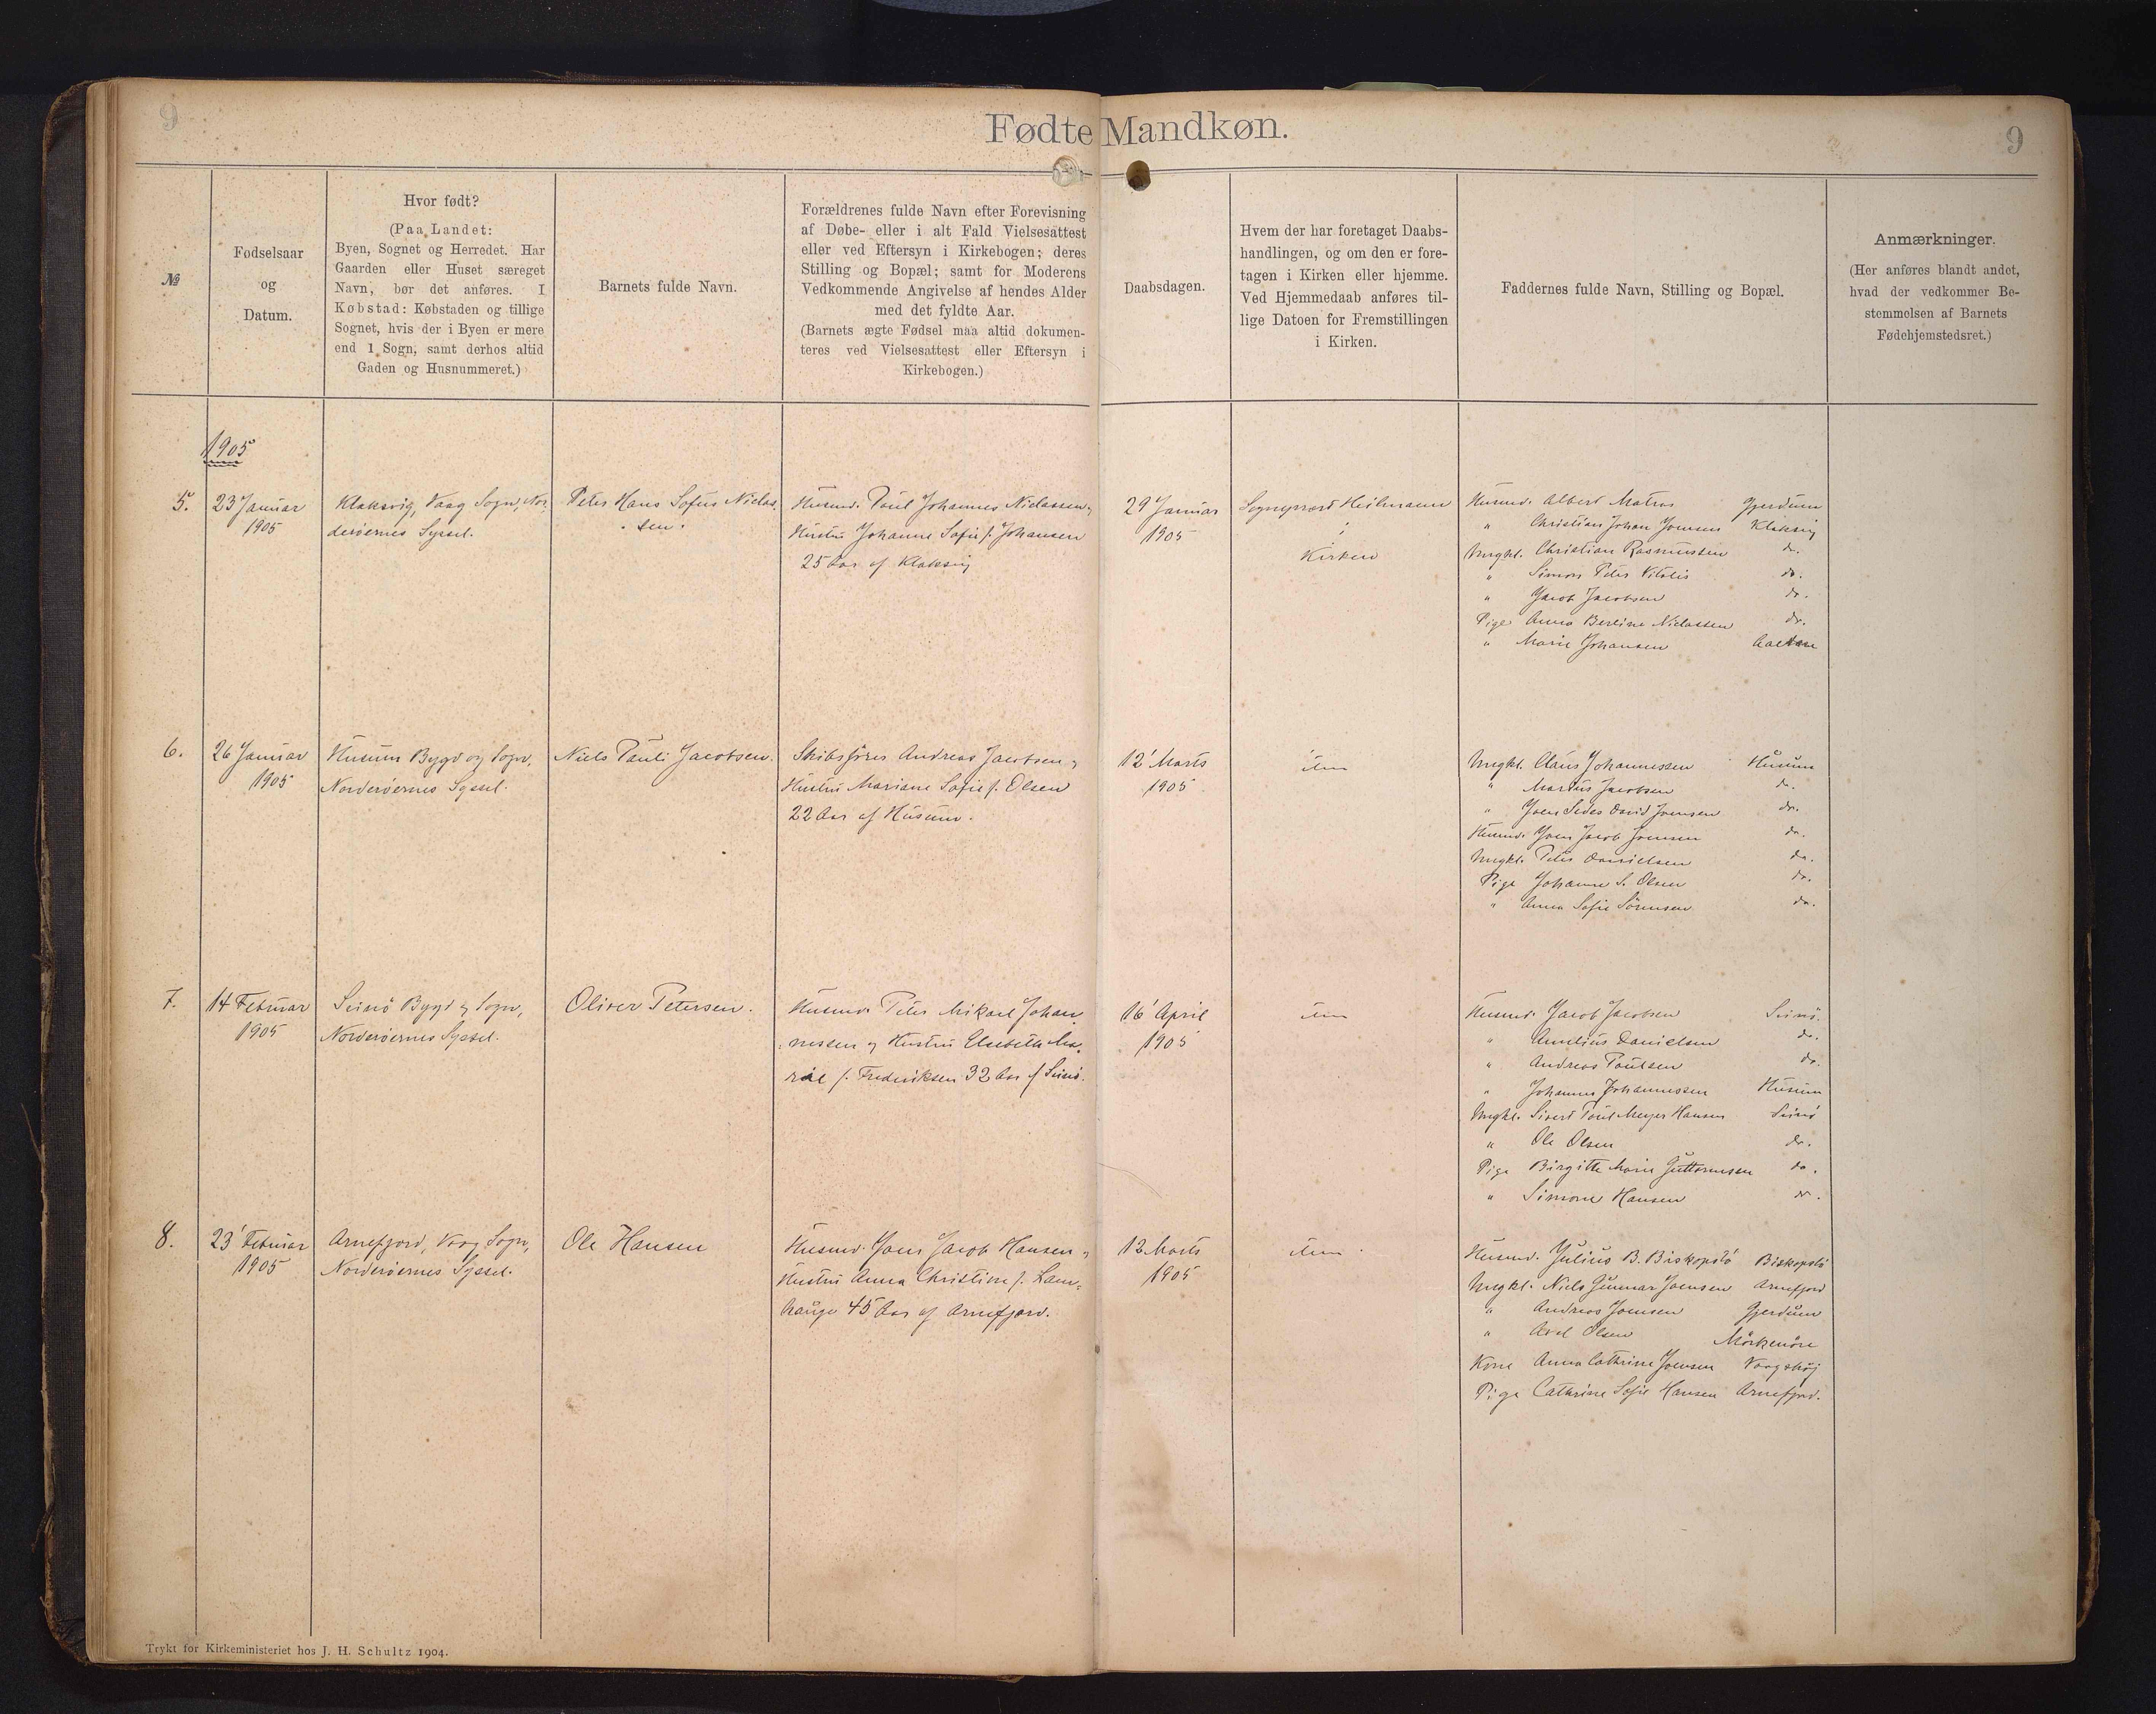 9
Fødte Mandkøn.
9
№
Fødselsaar
og
Datum.
Hvor født?
(Paa Landet:
Byen, Sognet og Herredet. Har
Gaarden eller Huset særeget
Navn, bør det anføres. I
Købstad: Købstaden og tillige
Sognet, hvis der i Byen er mere
end 1 Sogn, samt derhos altid
Gaden og Husnummeret.)
Barnets fulde Navn.
Forældrenes fulde Navn efter Forevisning
af Døbe- eller i alt Fald Vielsesattest
eller ved Eftersyn i Kirkebogen; deres
Stilling og Bopæl; samt for Moderens
Vedkommende Angivelse af hendes Alder
med det fyldte Aar.
(Barnets ægte Fødsel maa altid dokumen-
teres ved Vielsesattest eller Eftersyn i
Kirkebogen.)
Daabsdagen.
Hvem der har foretaget Daabs-
handlingen, og om den er fore-
tagen i Kirken eller hjemme.
Ved Hjemmedaab anføres til-
lige Datoen for Fremstillingen
i Kirken.
Faddernes fulde Navn, Stilling og Bopæl.
Anmærkninger.
(Her anføres blandt andet,
hvad der vedkommer Be-
stemmelsen af Barnets
Fødehjemstedsret.)
1905
5.
23 Januar
1905
Klaksvig, Vaag Sogn, Nor-
derøernes Syssel.
Peter Hans Sofus Niclas-
sen.
Husmd. Poul Johannes Niclassen,
Hustru Johanne Sofie f. Johansen
25 Aar af Klaksvig
29 Januar
1905
Sognepræst Heilmann
i
Kirken
Husmd. Albert Matras Gjerdum
" Christian Johan Joensen Klaksvig
Ungkl. Christian Rasmussen do.
" Simon Peter Vitalis do.
" Jacob Jacobsen do.
Pige Anna Berline Niclassen do.
" Marie Johansen
6.
26 Januar
1905
Husum Bygd og Sogn,
Norderøernes Syssel.
Niels Pauli Jacobsen.
Skibsfører Andreas Jacobsen,
Hustru Mariane Sofie f. Olsen
22 Aar af Husum.
12' Marts
1905
item
Ungkl. Claus Johannessen Husum
" Marius Jacobsen do.
" Joen David Joensen do.
Husmd. Joen Jacob Joensen do.
Ungkl. Peter Danielsen do.
Pige Johanne S. Olsen do.
" Anna Sofie Sörensen do.
7.
14 Februar
1905
Svinö Bygd og Sogn,
Norderøernes Syssel.
Oliver Petersen.
Husmd. Peter Mikael Johan-
nessen og Hustru Elsebeth Ma-
rie f. Frederiksen 32 Aar af Svinö.
16' April
1905
item
Husmd. Jacob Jacobsen Svinö.
" Danielsen do.
" Andreas Poulsen do.
" Johannes Johannessen Husum
Ungkl. Sivert Poul Meyer Hansen Svinö
" Ole Olsen do.
Pige Birgitte Marie Guttormsen do.
" Simone Hansen do.
8.
23' Februar
1905
Arnefjord, Vaag Sogn,
Norderøernes Syssel.
Ole Hansen
Husmd. Joen Jacob Hansen,
Hustru Anna Christine f. Lam-
hauge 45 Aar af Arnefjord.
12 Marts
1905
item.
Husmd. Julius B. Biskopstö Biskopstö
Ungkl. Niels Gunnar Joensen Arnefjord
" Andreas Joensen Gjerdum
" Axel Olsen Mörkenöre
Kone Anna Cathrine Joensen Vaagshöj
Pige Cathrine Sofie Hansen Arnefjord.
Trykt for Kirkeministeriet hos J. H. Schultz 1904.